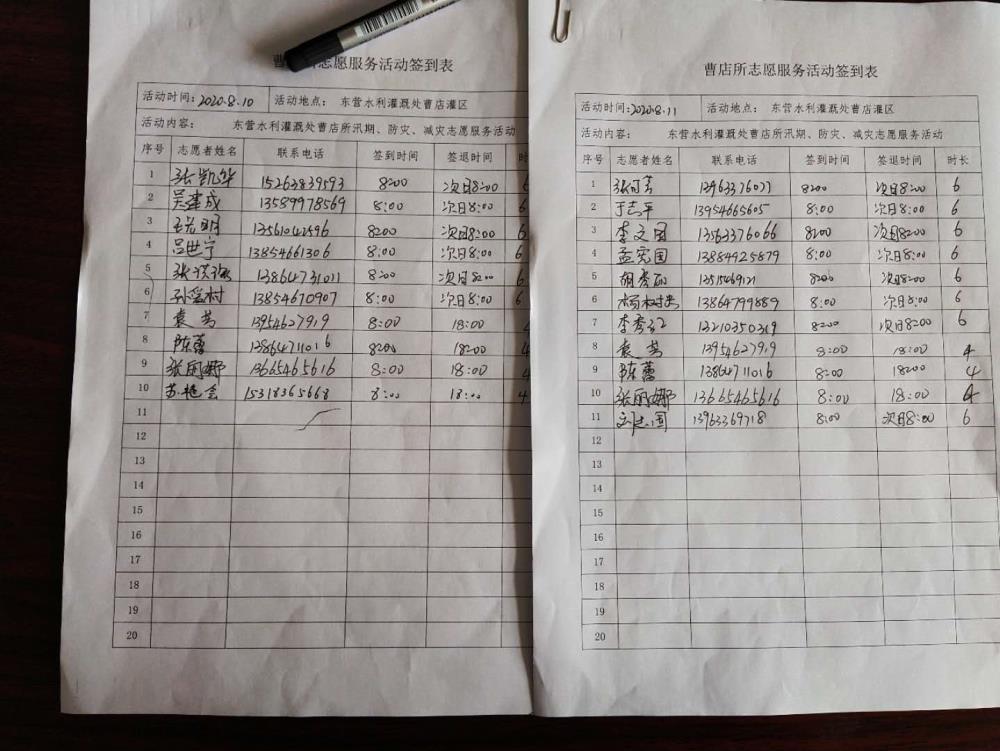 曹 所志愿服务活动签到表
活动时间: 2020.8.10 活动地点: 东营水利灌溉处曹店灌区
活动内容: 东营水利灌溉处曹店所汛期、防灾、减灾志愿服务活动
序号 志愿者姓名 联系电话 签到时间 签退时间 时
1 张凯华 15263839593 8:00 次日8:00 6
2 吴建成 13589978569 8:00 次日8:00 6
3 13561042596 8:00 次日8:00 6
4 吕世宁 13854661306 8:00 次日8:00 6
5 张 13864731011 8:00 次日8:00 6
6 孙 村 13854670907 8:00 次日8:00 6
7 袁芳 13954627919 8:00 18:00 4
8 陈蕾 13864711016 8:00 18:00 4
9 张丽娜 13665465616 8:00 18:00 4
10 苏艳会 15318365668 8:00 18:00 4
11
12
13
14
15
16
17
18
19
20
曹店所志愿服务活动签到表
活动时间: 2020.8.11 活动地点: 东营水利灌溉处曹店灌区
活动内容: 东营水利灌溉处曹店所汛期、防灾、减灾志愿服务活动
序号 志愿者姓名 联系电话 签到时间 签退时间 时长
1 张可芳 13963376077 8:00 次日8:00 6
2 于志平 13954665605 8:00 次日8:00 6
3 李文国 13563376066 8:00 次日8:00 6
4 孟宪国 13884925879 8:00 次日8:00 6
5 胡秀 8:00 次日8:00 6
6 杨树 13864799889 8:00 次日8:00 6
7 李秀红 13210350319 8:00 次日8:00 6
8 袁芳 13954627919 8:00 18:00 4
9 陈蕾 13864711016 8:00 18:00 4
10 张丽娜 13665465616 8:00 18:00 4
11 刘志国 13963369718 8:00 次日8:00 6
12
13
14
15
16
17
18
19
20